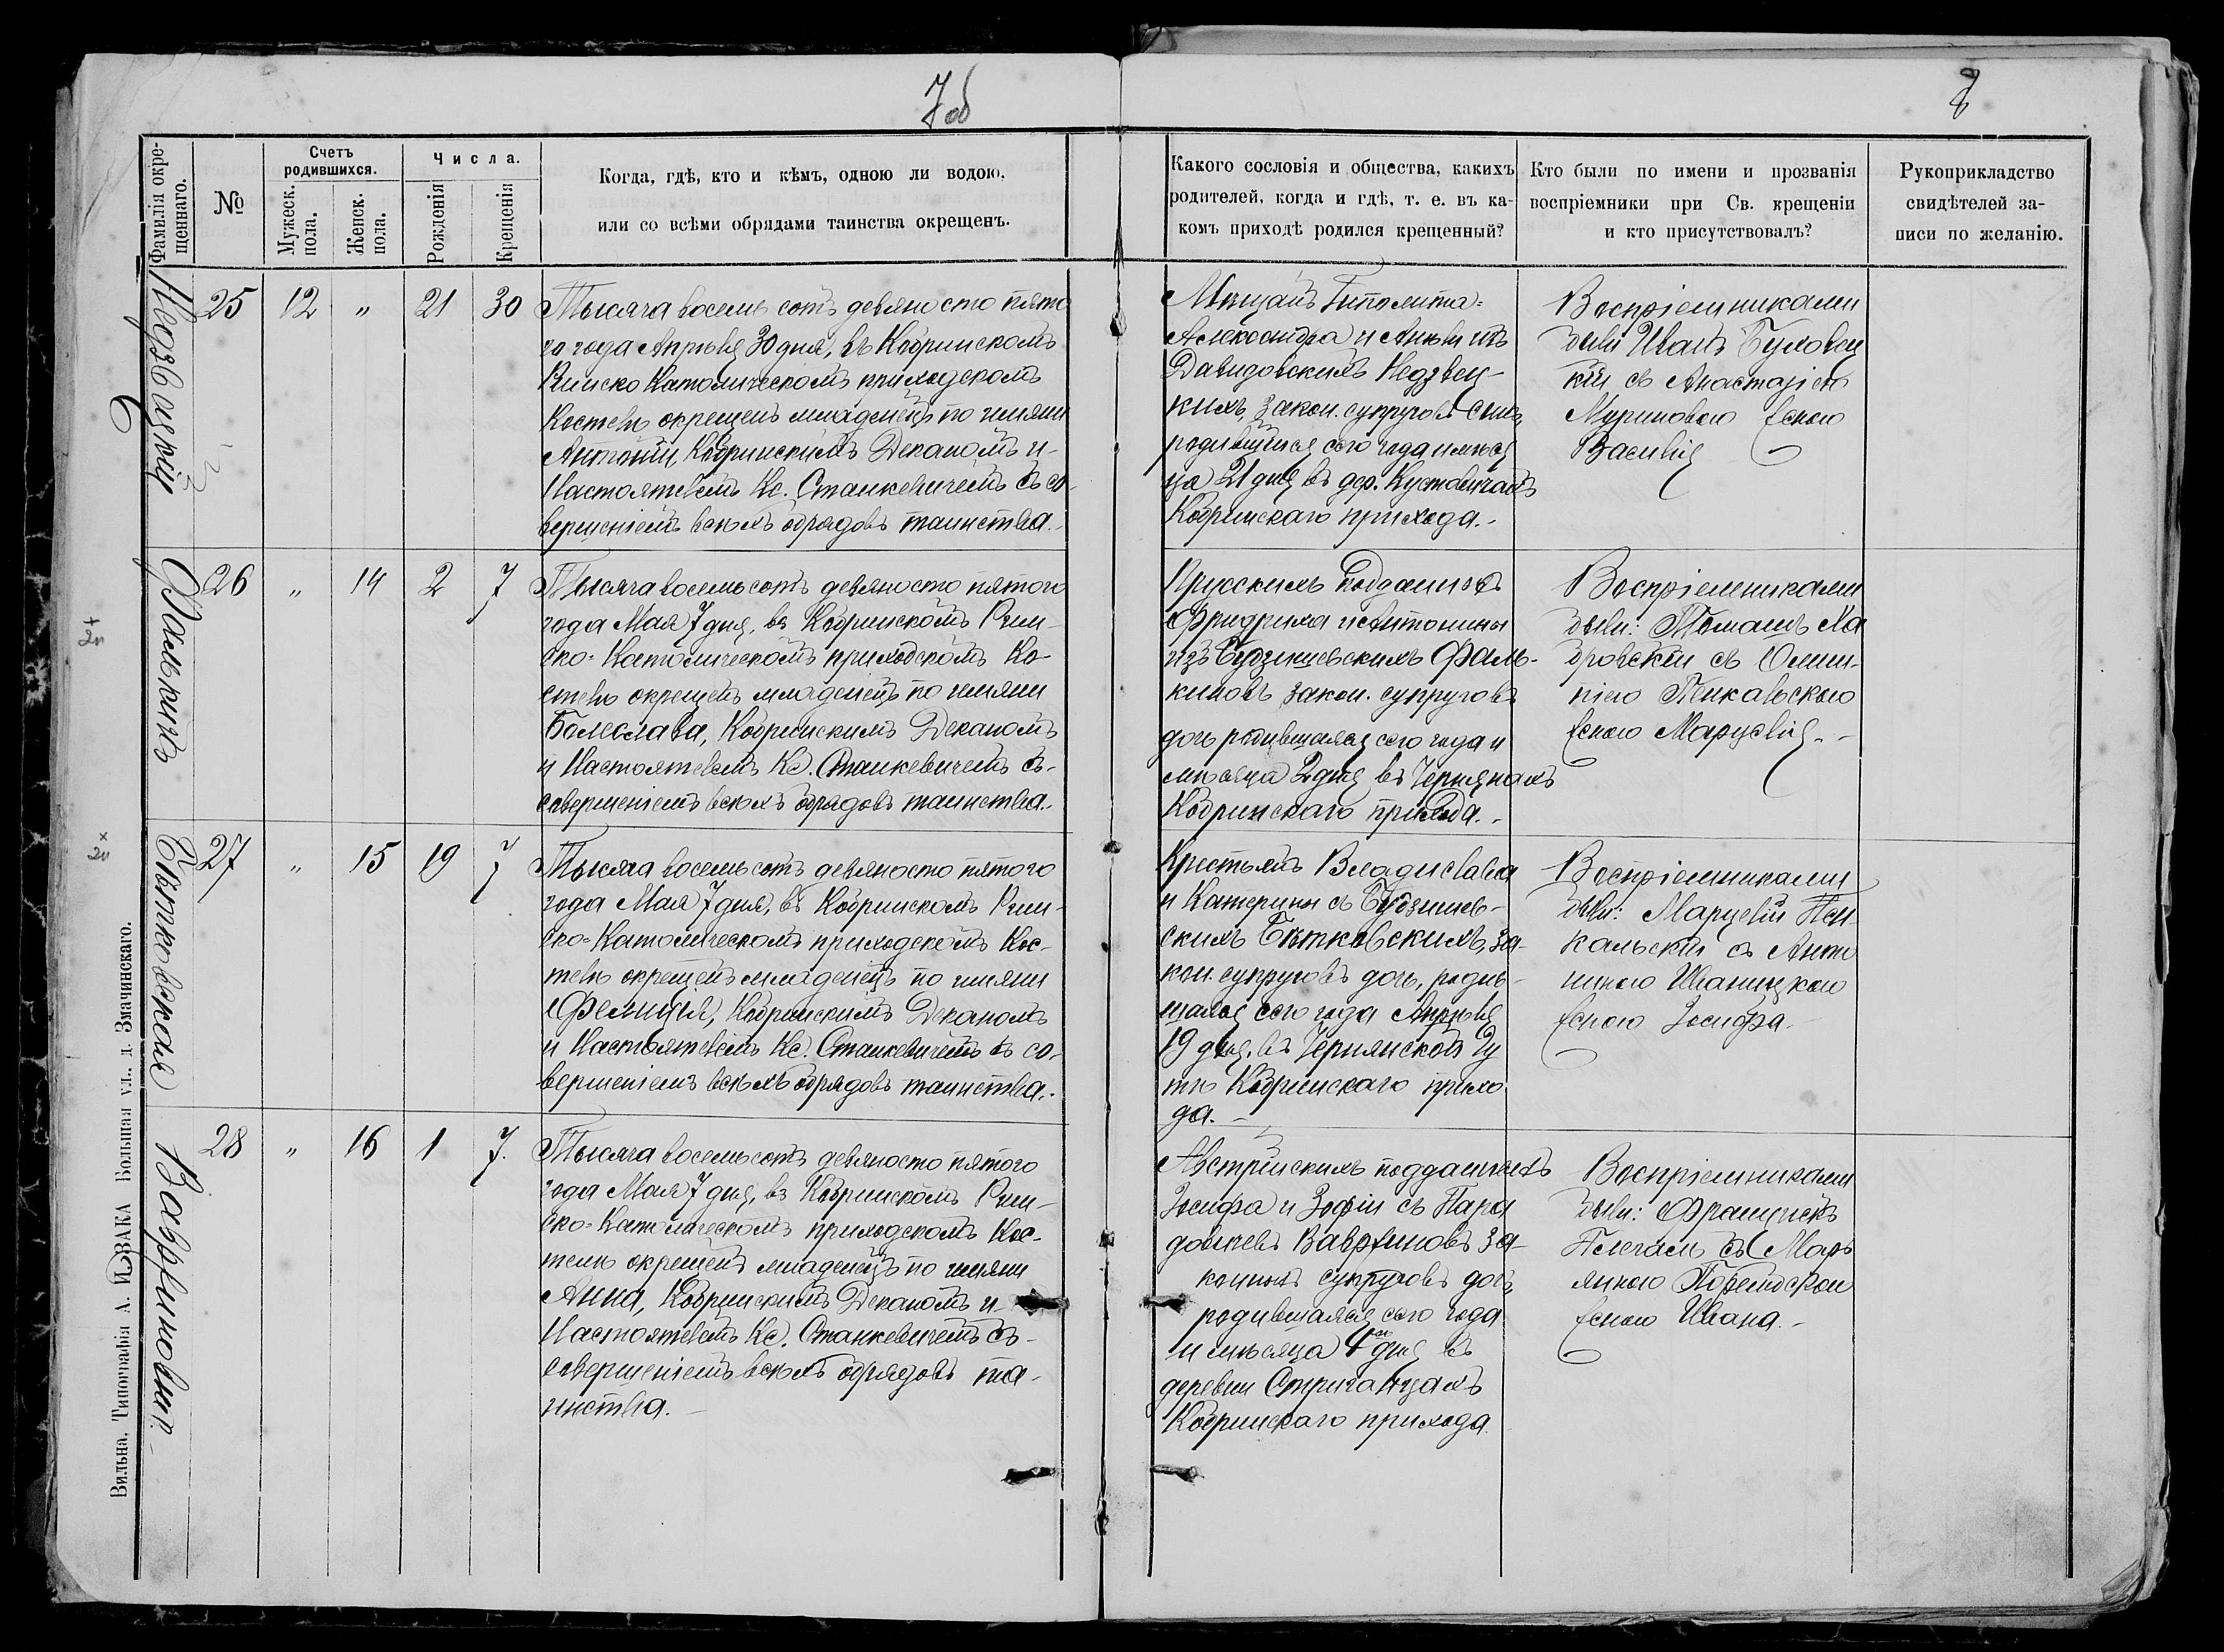 7об
8
Фамилія окре-
щеннаго.
№
Счетъ
родившихся.
Мужеск.
пола.
Женск.
пола.
Числа.
Рожденія
Крещенія
Когда, гдѣ, кто и кѣмъ, одною ли водою,
или со всѣми обрядами таинства окрещенъ.
Какого сословія и общества, какихъ
родителей, когда и гдѣ, т. е. въ ка-
комъ приходѣ родился крещенный?
Кто были по имени и прозванія
воспріемники при Св. крещеніи
и кто присутствовалъ?
Рукоприкладство
свидѣтелей за-
писи по желанію.
Недзвецкій
25 12 " 21 30
Тысяча восемь сотъ девяносто пято
го года Апрѣля 30 дня, въ Кобринскомъ
Римско Католическомъ приходскомъ
Костелѣ окрещенъ младенецъ по имяни
Антоній, Кобринскимъ Деканомъ и-
Настоятелемъ Кс. Станкевичемъ съ со-
вершеніемъ всѣхъ обрядовъ таинства.-
Мѣщанъ Гиполита-
Александра и Анны изъ
Давидовскихъ Недзвец-
кихъ, закон. супруговъ сынъ,
родившійся сего года и мѣся
ца 21 дня въ дер. Кустовичахъ
Кобринскаго прихода.-
Воспріемниками
были Иванъ Буховец
кій съ Анастазіею
Муриновою женою
Василія
Фалькинъ
26 " 14 2 7
Тысяча восемьсотъ девяносто пятого
года Мая 7 дня, въ Кобринскомъ Рим-
ско-Католическомъ приходскомъ Ко-
стелѣ окрещенъ младенецъ по имяни
Болеслава, Кобринскимъ Деканомъ
и Настоятелемъ Кс. Станкевичемъ съ-
совершеніемъ всѣхъ обрядовъ таинства.-
Прусскихъ подданныхъ
Фридриха и Антонины
изъ Будзишевскихъ Фаль-
киновъ закон. супруговъ
дочь родившаяся сего года и
мѣсяца 2 дня въ Чернянахъ
Кобринскаго прихода.-
Воспріемниками
были: Томашъ Ха
бровскій съ Олим-
піею Пенкальскою
женою Марцелія.-
Бытковская
27 " 15 19 7
Тысяча восемьсотъ девяносто пятого
года Мая 7 дня, въ Кобринскомъ Рим-
ско-Католическомъ приходскомъ Кос-
телѣ окрещенъ младенецъ по имяни
Фелиція, Кобринскимъ Деканомъ
и Настоятелемъ Кс. Станкевичемъ съ со-
вершеніемъ всѣхъ обрядовъ таинства.-
Крестьянъ Владислава
и Катерины съ Будзишев-
скихъ Бытковскихъ, за-
кон. супруговъ дочь, родив-
шаяся сего года Апрѣля
19 дня, въ Чернянской Гу
тѣ Кобринскаго прихо
да.-
Воспріемниками
были: Марцелій Пен
кальскій съ Анто
ниною Иваницкою
женою Іосифа.-
Вавржиновичъ
28 " 16 1 7.
Тысяча восемьсотъ девяносто пятого
года Мая 7 дня, въ Кобринскомъ Рим-
ско-Католическомъ приходскомъ Кос-
телѣ окрещенъ младенецъ по имяни
Анна, Кобринскимъ Деканомъ и-
Настоятелемъ Кс. Станкевичемъ съ-
совершеніемъ всѣхъ обрядовъ та-
инства.-
Австрійскихъ подданныхъ
Іосифа и Зофіи съ
Вавржиновъ за-
конныхъ супруговъ дочь,
родившаяся сего года
и мѣсяца 1 дня въ
деревни Стриганцахъ
Кобринскаго прихода.
Воспріемниками
были: Францискъ
съ Марь
янною
женою Ивана.-
Вильна. Типографія А. И. ЗАКА Большая ул., д. Змачинскаго.